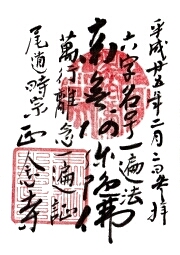 平成廿五年二月二日奉拝
六字名号一遍法
南無阿弥陀佛
萬行離念一遍証
尾道時宗正念寺